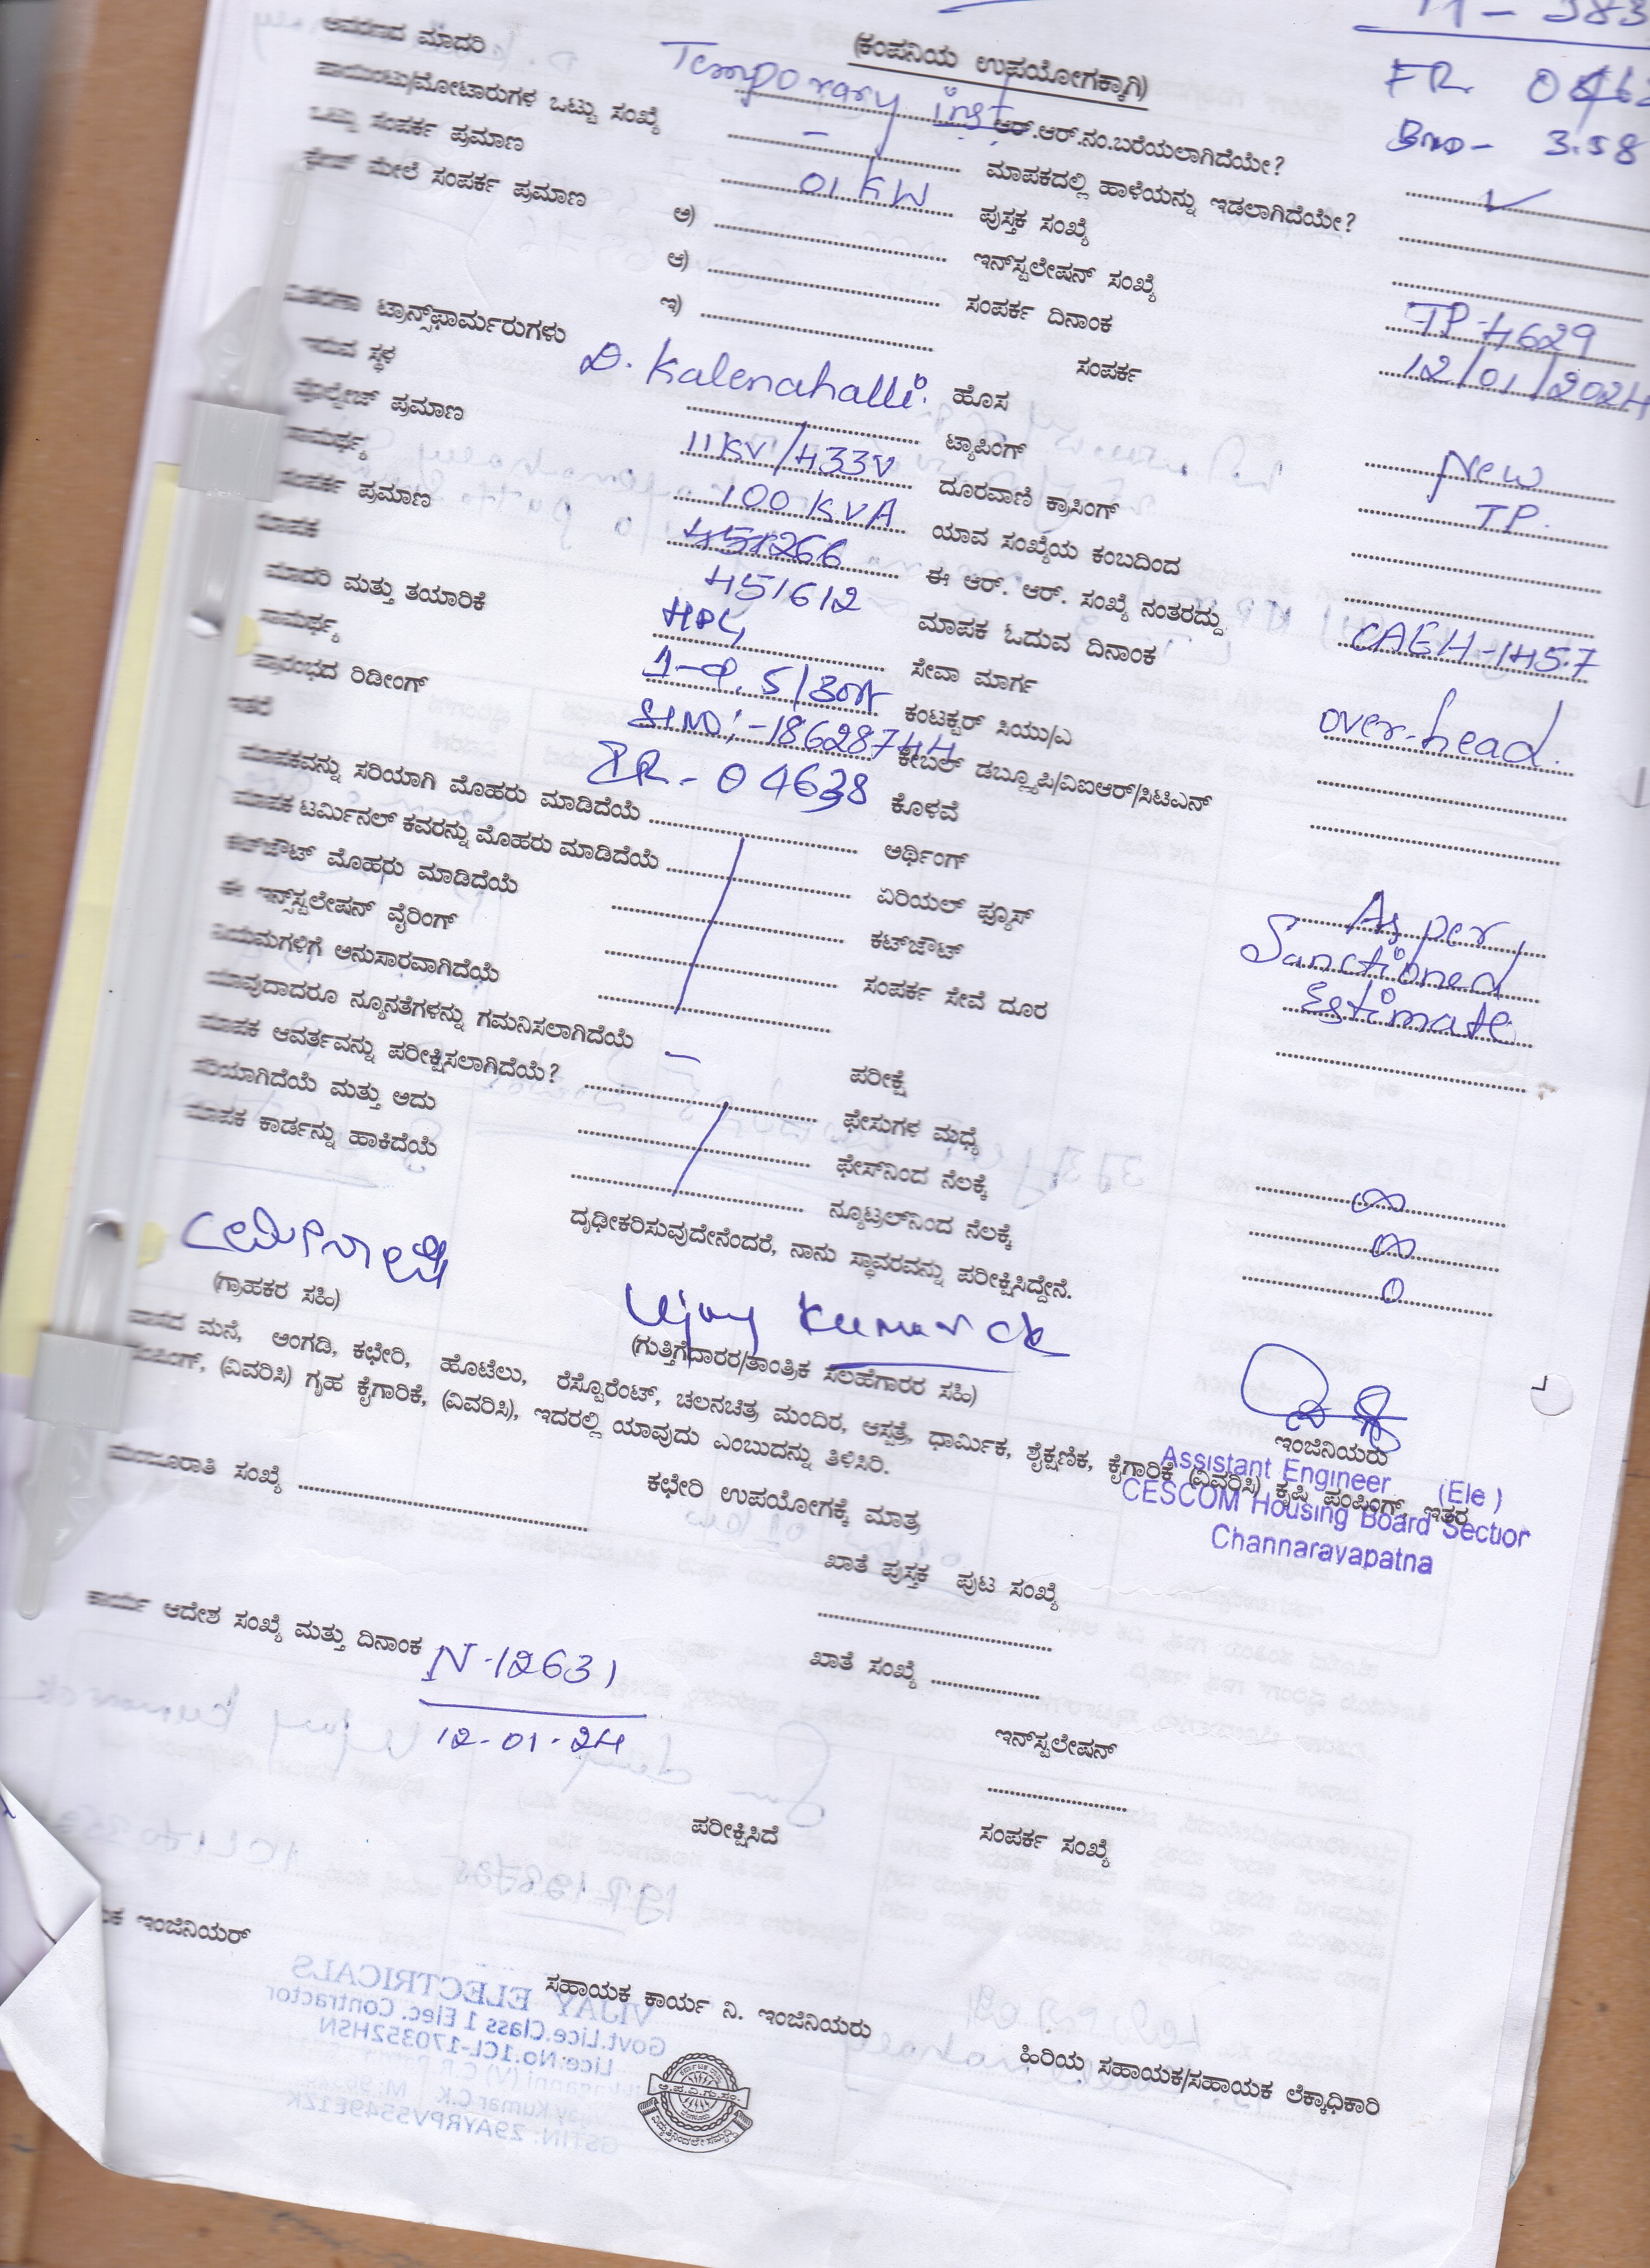 11 - 383
(ಕಂಪನಿಯ ಉಪಯೋಗಕ್ಕಾಗಿ)
FR 0462
BMD - 3.58
ಆವರಣದ ಮಾದರಿ Temporary inst. ಆರ್.ಆರ್.ನಂ.ಬರೆಯಲಾಗಿದೆಯೇ? ✓
ಪಾಯಿಂಟು/ಮೋಟಾರುಗಳ ಒಟ್ಟು ಸಂಖ್ಯೆ - ಮಾಪಕದಲ್ಲಿ ಹಾಳೆಯನ್ನು ಇಡಲಾಗಿದೆಯೇ?
ಒಟ್ಟು ಸಂಪರ್ಕ ಪ್ರಮಾಣ 01 KW ಪುಸ್ತಕ ಸಂಖ್ಯೆ
ಫೇಜ್ ಮೇಲೆ ಸಂಪರ್ಕ ಪ್ರಮಾಣ ಅ) ಇನ್‌ಸ್ಟಲೇಷನ್ ಸಂಖ್ಯೆ TP-4629
ಆ) ಸಂಪರ್ಕ ದಿನಾಂಕ 12/01/2024
ಇ) ಸಂಪರ್ಕ
ವಿತರಣಾ ಟ್ರಾನ್ಸ್‌ಫಾರ್ಮರುಗಳು
ಇರುವ ಸ್ಥಳ D. Kalenahalli. ಹೊಸ New
ವೋಲ್ಟೇಜ್ ಪ್ರಮಾಣ 11KV/433V ಟ್ಯಾಪಿಂಗ್ TP.
ಸಾಮರ್ಥ್ಯ 100 KVA ದೂರವಾಣಿ ಕ್ರಾಸಿಂಗ್
ಸಂಪರ್ಕ ಪ್ರಮಾಣ 451266 ಯಾವ ಸಂಖ್ಯೆಯ ಕಂಬದಿಂದ
ಮಾಪಕ 451612 ಈ ಆರ್. ಆರ್. ಸಂಖ್ಯೆ ನಂತರದ್ದು CAEH-1457
ಮಾದರಿ ಮತ್ತು ತಯಾರಿಕೆ HPL, ಮಾಪಕ ಓದುವ ದಿನಾಂಕ
ಸಾಮರ್ಥ್ಯ 1-Φ, 5/30A ಸೇವಾ ಮಾರ್ಗ over-head.
ಪ್ರಾರಂಭದ ರಿಡೀಂಗ್ Sl.NO:-18628744 ಕಂಟಕ್ಟರ್ ಸಿಯು/ಎ
ಇತರೆ IR - 04638 ಕೇಬಲ್ ಡಬ್ಲ್ಯೂಪಿ/ವಿಐಆರ್/ಸಿಟಿಎಸ್
ಮಾಪಕವನ್ನು ಸರಿಯಾಗಿ ಮೊಹರು ಮಾಡಿದೆಯೆ ಕೊಳವೆ
ಮಾಪಕ ಟರ್ಮಿನಲ್ ಕವರನ್ನು ಮೊಹರು ಮಾಡಿದೆಯೆ ಅರ್ಥಿಂಗ್ As per
ಕಟ್‌ಔಟ್ ಮೊಹರು ಮಾಡಿದೆಯೆ ಏರಿಯಲ್ ಫ್ಯೂಸ್ Sanctioned
ಈ ಇನ್ಸ್‌ಸ್ಟಲೇಷನ್ ವೈರಿಂಗ್ ಕಟ್‌ಔಟ್ Estimate
ನಿಯಮಗಳಿಗೆ ಅನುಸಾರವಾಗಿದೆಯೆ ಸಂಪರ್ಕ ಸೇವೆ ದೂರ
ಯಾವುದಾದರೂ ನ್ಯೂನತೆಗಳನ್ನು ಗಮನಿಸಲಾಗಿದೆಯೆ -
ಮಾಪಕ ಆವರ್ತವನ್ನು ಪರೀಕ್ಷಿಸಲಾಗಿದೆಯೆ? ಪರೀಕ್ಷೆ
ಸರಿಯಾಗಿದೆಯೆ ಮತ್ತು ಅದು ಫೇಸುಗಳ ಮಧ್ಯೆ ∞
ಮಾಪಕ ಕಾರ್ಡನ್ನು ಹಾಕಿದೆಯೆ ಫೇಸ್‌ನಿಂದ ನೆಲಕ್ಕೆ ∞
ನ್ಯೂಟ್ರಲ್‌ನಿಂದ ನೆಲಕ್ಕೆ 0
ದೃಢೀಕರಿಸುವುದೇನೆಂದರೆ, ನಾನು ಸ್ಥಾವರವನ್ನು ಪರೀಕ್ಷಿಸಿದ್ದೇನೆ.
(ಗ್ರಾಹಕರ ಸಹಿ)
Vijay Kumar CK
(ಗುತ್ತಿಗೆದಾರರ/ತಾಂತ್ರಿಕ ಸಲಹೆಗಾರರ ಸಹಿ)
ಇಂಜಿನಿಯರು
Assistant Engineer (Ele)
CESCOM Housing Board Section
Channarayapatna
ವಾಸದ ಮನೆ, ಅಂಗಡಿ, ಕಛೇರಿ, ಹೊಟೆಲು, ರೆಸ್ಟೊರೆಂಟ್, ಚಲನಚಿತ್ರ ಮಂದಿರ, ಆಸ್ಪತ್ರೆ, ಧಾರ್ಮಿಕ, ಶೈಕ್ಷಣಿಕ, ಕೈಗಾರಿಕೆ (ವಿವರಿಸಿ) ಕೃಷಿ ಪಂಪಿಂಗ್, ಇತರ
ಪಂಪಿಂಗ್, (ವಿವರಿಸಿ) ಗೃಹ ಕೈಗಾರಿಕೆ, (ವಿವರಿಸಿ), ಇದರಲ್ಲಿ ಯಾವುದು ಎಂಬುದನ್ನು ತಿಳಿಸಿರಿ.
ಕಛೇರಿ ಉಪಯೋಗಕ್ಕೆ ಮಾತ್ರ
ಮಂಜೂರಾತಿ ಸಂಖ್ಯೆ
ಖಾತೆ ಪುಸ್ತಕ ಪುಟ ಸಂಖ್ಯೆ
ಕಾರ್ಯ ಆದೇಶ ಸಂಖ್ಯೆ ಮತ್ತು ದಿನಾಂಕ N-12631
12-01-24
ಖಾತೆ ಸಂಖ್ಯೆ
ಇನ್‌ಸ್ಟಲೇಷನ್
ಪರೀಕ್ಷಿಸಿದೆ
ಸಂಪರ್ಕ ಸಂಖ್ಯೆ
ಇಂಜಿನಿಯರ್
ಸಹಾಯಕ ಕಾರ್ಯ ನಿ. ಇಂಜಿನಿಯರು
ಹಿರಿಯ ಸಹಾಯಕ/ಸಹಾಯಕ ಲೆಕ್ಕಾಧಿಕಾರಿ